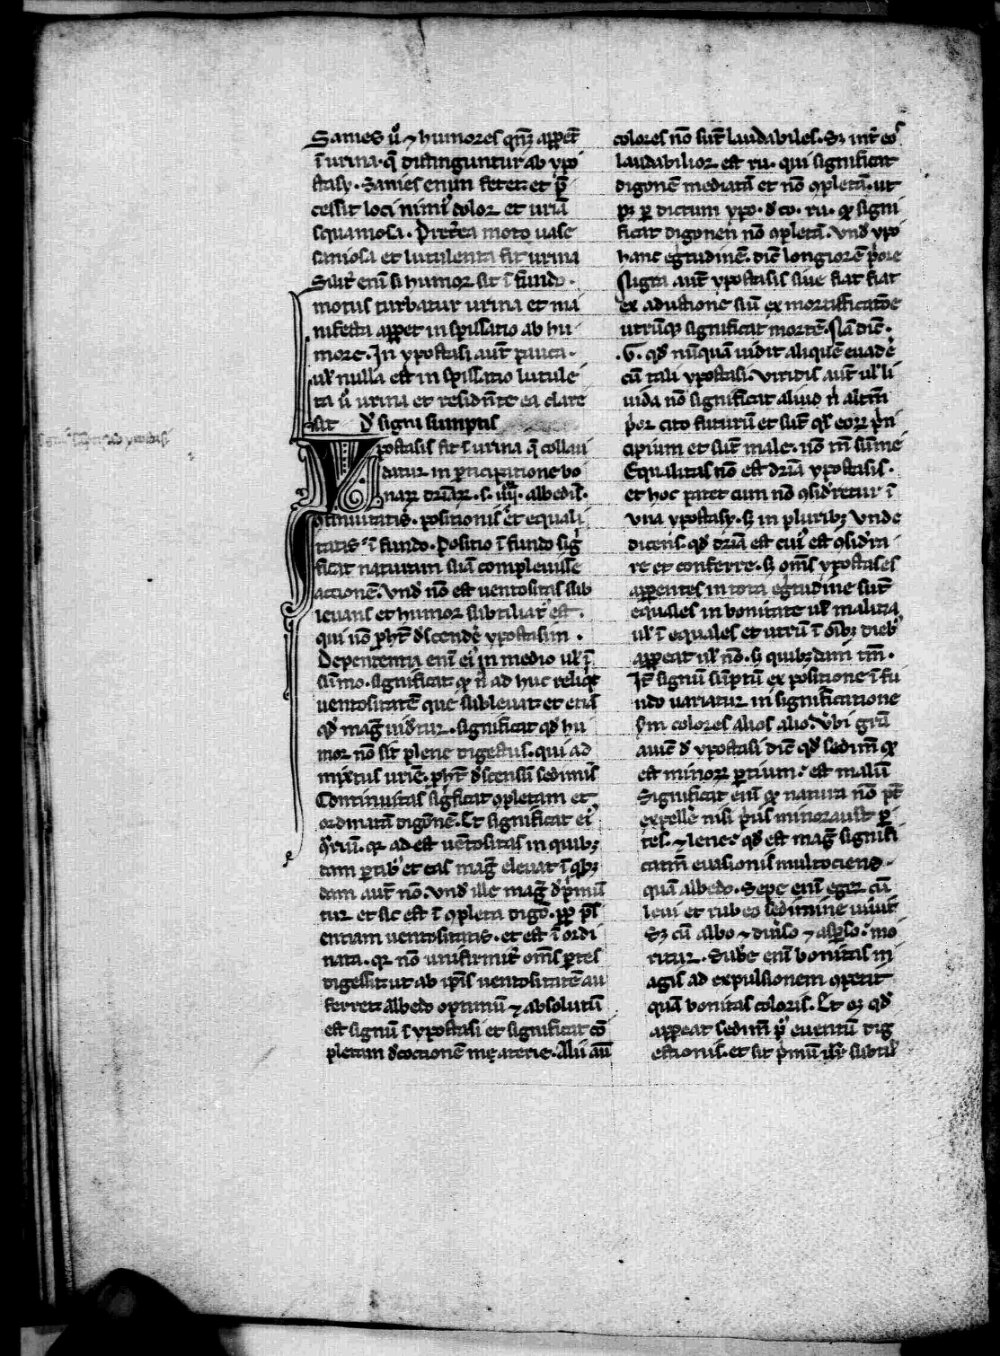 Sanies u͛o ⁊ humores qn̄ꝫ apparēt
ī urina. q̄ distinguntur ab ypo
stasy. Sanies enim fetet et p̄
cessit loci nimi᷒ dolor et urīa
squamosa. Preterea moto uase
saniosa et lutulenta fit urina
Sil'r eni͂ si humor sit ī fundo.
motus turbatur urina et ma
nifesta apparet inspissatio ab hu
more. In ypostasi aut̄ pauca.
uel nulla est inspissatio lutulē
ta s; urina et residēte ea clare
sit de signi sumptis
Ypostasis fit ī urina q̄ collau
datur in participatione bo
naꝝ dr̄iaꝝ. s. iiij. albedīs.
ꝯtinuitatis. positionis et equali
tatis ī fundo. Positio ī fundo sig̅
ficat naturam suā compleuisse
actionē. Vnd̄ nō est uentositas sub
leuans et humor subtiliat᷒ est.
qui nō ꝓhib; descende ypostasim.
Dependentia eni͂ ei᷒ in medio uel ī
sūmo. significat ꝙ n̄ adhuc reliq̄t
uentositatē que subleuat et etiā
qd̄ mag̅ uidetur. significat qd̄ hu
mor nō sit plene digestus. qui ad
mixtus urine. ꝓhib; descensū sediminis
Continuitas significat ꝯpletam et
ordinatā digōnē. Et significat ei᷒
ꝯ̄riū. qr adest uētositas in quibꝫ
dam partibꝫ et eas mag̅ eleuat ī qbꝫ
dam aut̄ nō. Vnd̄ ille mag̅ dep̄mū
tur. et sic est ī ꝯpleta digō. ꝓpt̄ p̄s
entiam uentositatis. et est īordi
nata. qr nō unifirmit̄ om̄s partes
digessit ut ab ip̄is uentositatē au
ferret. albedo optimū ⁊ absolutū
est signū ī ypostasi et significat cō
pletam decoctionē materie. Alii aūt
colores nō sūt laudabiles. Sꝫ int̄ eos
laudabilior est ru. qui significat
digonē mediatā et nō ꝯpletā. ut
pꝫ per dictum ypo. de co. ru. ꝙ signi
ficat digonem nō ꝯpletā. Vnd̄ ypo
hanc egtudinē. dic̄ longiorē p̄ore
Nigra aut̄ ypostasis siue fiat fiat
ex adustione siū ex mortificatōe
utrūqꝫ significat mortē. Nā dic̄.
.G. qd̄ nūquā uidit aliquē euade
cū tali ypostasi. Viridis aut̄ uel li
uida nō significat aliud n̄ alt̄m
p̄or cito futurū et sūt qs̄ eoꝝ p̄n
cipium et sūt male. nō tn̄ sūme
Equalitas nō est dr̄ia ypostasis.
et hoc patet cum nō ꝯsideretur ī
una ypostasy. sꝫ in pluribꝫ Vnde
dicens. qd̄ dr̄ia est cui᷒ est ꝯsidera
re et conferre. si om̄s ypostases
apparentes in tota egtudine sūt
equales in bonitate uel malitia
uel ī equales et utrū ī oībꝫ diebꝫ
appareat uel nō. sꝫ quibusdam tm̄.
It̄ signū sūptū ex positione ī fu
ndo uariatur in significatione
s̄m colores alios alio. Vbi grā
auic̄ de ypostasi dic̄ qd̄ sedim̄ ꝙ
est minoꝝ partium. est malū
Significat eni͂ ꝙ natura nō pt̄
expelle nisi pri᷒ minorauit par
tes. ⁊ lene. qd̄ est mag̅ signifi
catm̄ euasionis multociens.
quā albedo. Sepe eni͂ eger cū
leui et rubeo sedimine uiuit
Sꝫ cū albo ⁊ diuiso ⁊ aspero. mo
ritur. Subst̄e eni͂ bonitas m
agis ad expulsionem operat̄
quā bonitas coloris. Et oꝫ qd̄
appareat sedim̄ pt̄ euentū dig
estionis. et sit p̄mū ilud subtil'